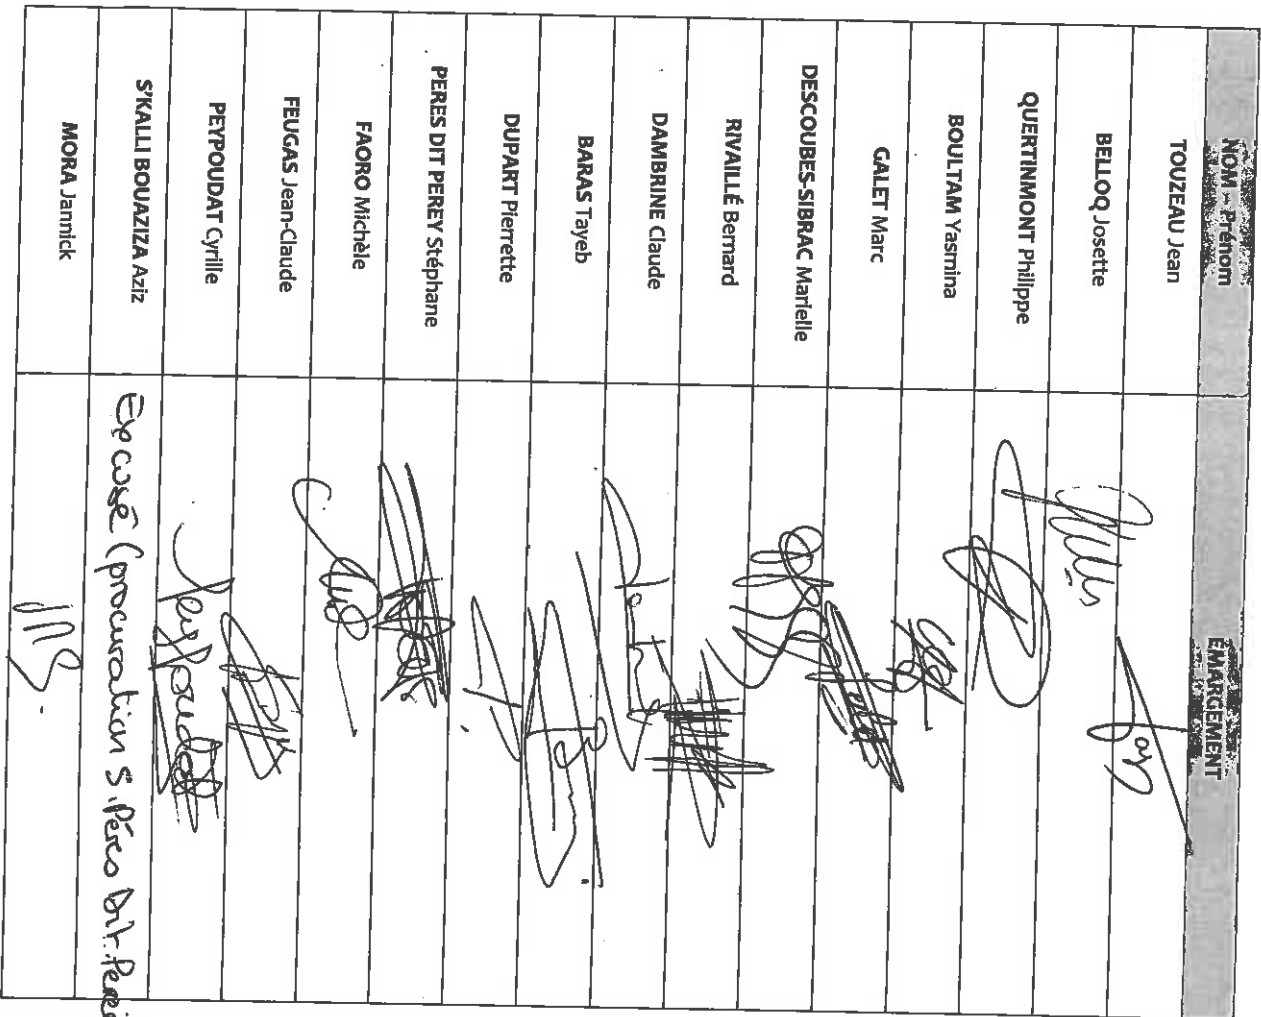 NOM – Prénom ÉMARGEMENT
TOUZEAU Jean
BELLOQ Josette
QUERTINMONT Philippe
BOULTAM Yasmina
GALET Marc
DESCOUBES-SIBRAC Marielle
RIVAILLÉ Bernard
DAMBRINE Claude
BARAS Tayeb
DUPART Pierrette
PERES DIT PEREY Stéphane
FAORO Michèle
FEUGAS Jean-Claude
PEYPOUDAT Cyrille Peypoudat
S'KALLI BOUAZIZA Aziz Excusé (procuration S. Pérès Dit Perey
MORA Jannick